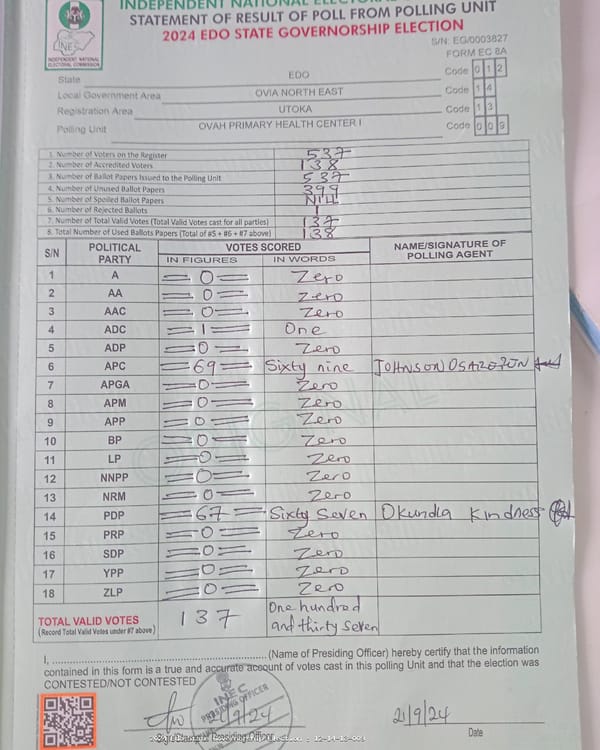 INDEPENDENT NATIONAL
STATEMENT OF RESULT OF POLL FROM POLLING UNIT
2024 EDO STATE GOVERNORSHIP ELECTION
INEC
INDEPENDENT NATIONAL ELECTORAL COMMISSION
S/N: EG/0003827
FORM EC 8A
State EDO Code 0 1 2
Local Government Area OVIA NORTH EAST Code 1 4
Registration Area UTOKA Code 1 3
Polling Unit OVAH PRIMARY HEALTH CENTER I Code 0 0 9
1. Number of Voters on the Register 537
2. Number of Accredited Voters 138
3. Number of Ballot Papers Issued to the Polling Unit 537
4. Number of Unused Ballot Papers 399
5. Number of Spoiled Ballot Papers Nill
6. Number of Rejected Ballots 1
7. Number of Total Valid Votes (Total Valid Votes cast for all parties) 137
8. Total Number of Used Ballots Papers (Total of #5 + #6 + #7 above) 138
S/N POLITICAL PARTY VOTES SCORED NAME/SIGNATURE OF POLLING AGENT
IN FIGURES IN WORDS
1 A =0= Zero
2 AA =0= Zero
3 AAC =0= Zero
4 ADC =1= One
5 ADP =0= Zero
6 APC =69= Sixty nine JOHNSON
7 APGA =0= Zero
8 APM =0= Zero
9 APP =0= Zero
10 BP =0= Zero
11 LP =0= Zero
12 NNPP =0= Zero
13 NRM =0= Zero
14 PDP =67= Sixty Seven Kindness
15 PRP =0= Zero
16 SDP =0= Zero
17 YPP =0= Zero
18 ZLP =0= Zero
TOTAL VALID VOTES 137 One hundred
(Record Total Valid Votes under #7 above) and thirty seven
I, (Name of Presiding Officer) hereby certify that the information
contained in this form is a true and accurate account of votes cast in this polling Unit and that the election was
CONTESTED/NOT CONTESTED
INEC
PRESIDING OFFICER
21/9/24 21/9/24
Date